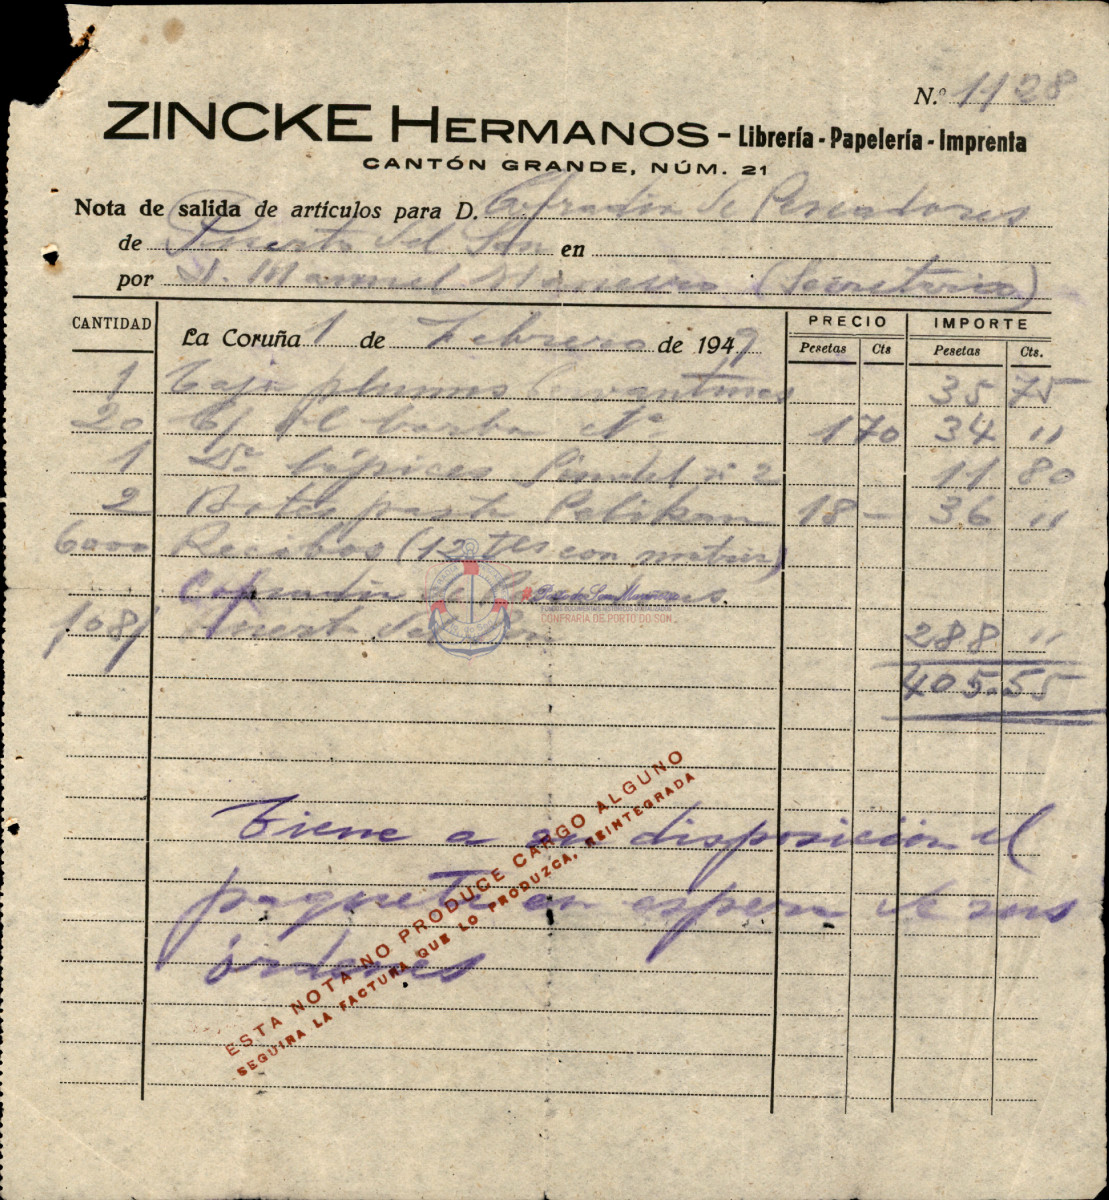 N.º 1128
ZINCKE HERMANOS - Librería - Papelería - Imprenta
CANTÓN GRANDE, NÚM. 21
Nota de salida de artículos para D. Cofradia de Pescadores
de Puerto del Son en
por D. Manuel Maneiro (Secretario)
CANTIDAD La Coruña 1 de Febrero de 1949 PRECIO IMPORTE
Pesetas Cts Pesetas Cts.
1 Caja plumas Cervantinas 35 75
20 barba 1 70 34 "
1 Dª lápices nº 2 11 80
2 Botes pasta Pelikan 18 - 36 "
6000 Recibos (12 tes con matriz)
Cofradia de Pescadores
Puerto del Son 288 "
CONFRARÍA DE PORTO DO SON
405.55
Tiene a su disposición el
paquete en espera de sus
órdenes
ESTA NOTA NO PRODUCE CARGO ALGUNO
SEGUIRA LA FACTURA QUE LO PRODUZCA, REINTEGRADA